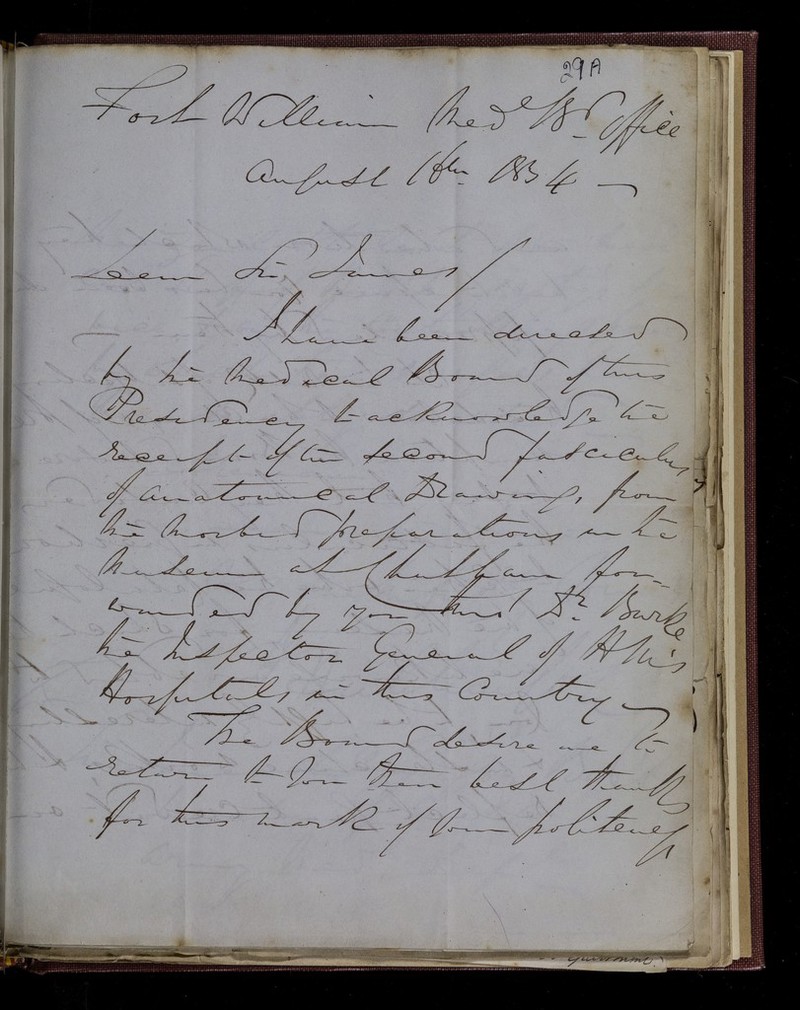 29A
Fort William Medl Bd Office
August 18th 1834
Dear Sir James/
I have been directed
by the Medical Board of this
Presidency to acknowledge the
receipt of the second fasciculus
of anatomical Drawings, from
the morbid preparations in the
Museum at Chatham for-
warded by you thro' Dr. Burke
the Inspector General of H M's
Hospitals in this Country
The Board desire me to
return to You their best thanks
for this mark of Your politeness